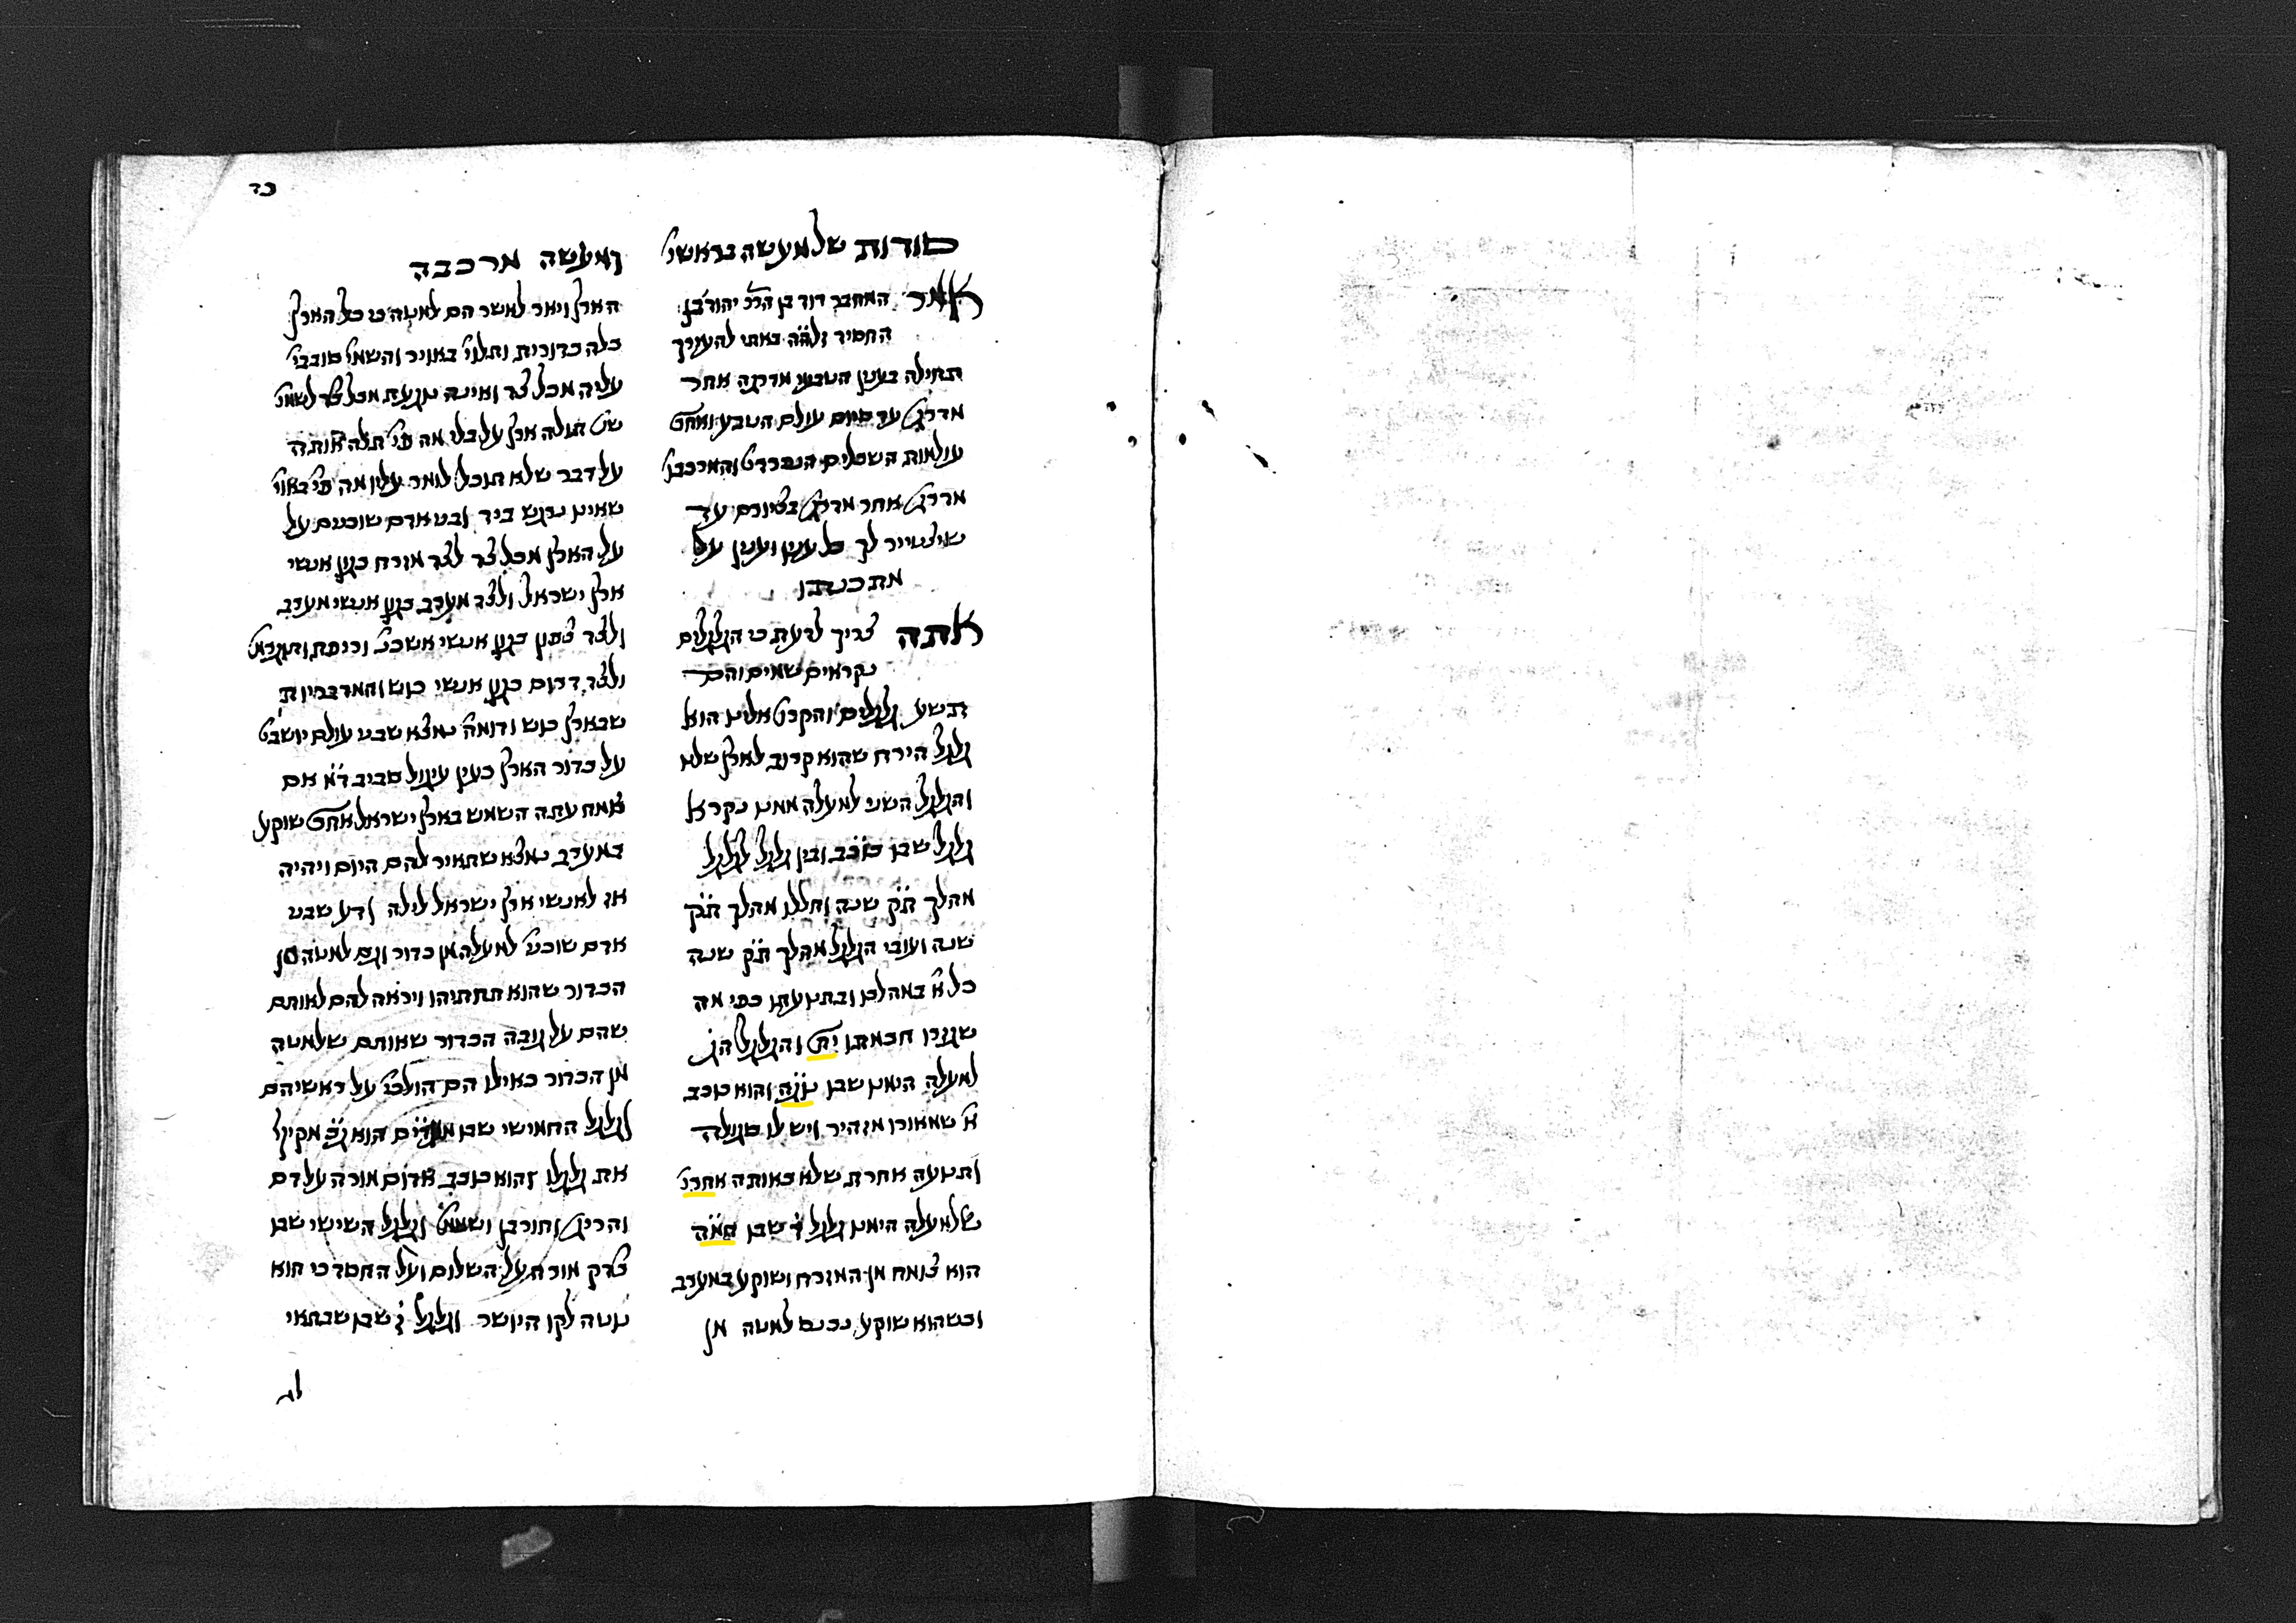 כד
סודות של מעשה בראשי'
אמר המחבר דוד בן הר"ר יהוד' בן
החסיד זלה"ה באתי להעירך
תחילה בענין הטבעי מדרגה אחר
מדרג' עד סיום עולם הטבע ואח"כ
עולמות השכלים הנפרדי' והמרכבו'
מדרג' אחר מדרג' בציורם עד
שיצטייר לך כל ענין וענין על
מתכנתו
אתה צריך לדעת כי הגלגלים
נקראים שמים והם
תשע גלגלים והקרוב אלינו הוא
גלגל הירח שהוא קרוב לארץ שלנו
והגלגל השני למעלה ממנו נקרא
גלגל שבו כוכב ובין גלגל לגלגל
מהלך ת"ק שנה וחללו מהלך ת"ק
שנה ועובי הגלגל מהלך ת"ק שנה
כל א' במהלכו ובתנועתו כפי מה
שגזרו חכמתו ית' והגלגל הג'
למעלה הימנו שבו נוגה והוא כוכב
א' שמאורו מזהיר ויש לו סגולה
ותנועה אחרת שלא כאותה אחרנ'
שלמעלה הימנו גלגל ד' שבו חמה
הוא צומח מן המזרח ושוקע במערב
וכשהוא שוקע נכנס למטה מן
ומעשה מרכבה
הארץ ויאר לאשר הם למטה כי כל הארץ
כלה כדורית ותלוי' באויר והשמי' סובבי'
עליה מכל צד ואינה נוגעת מכל צד לשמי'
שנ' תולה ארץ על בלי מה פי' תלה אותה
על דבר שלא תוכל לומר עליו מה פי' באוי'
שאינו נרגש ביד ובני אדם שוכנים על
על הארץ מכל צד לצד מזרח כגון אנשי
ארץ ישראל ולצד מערב כגון אנשי מערב
ולצד צפון כגון אנשי אשכנז וריפת ותוגרמ'
ולצד דרום כגון אנשי כוש והמדבריות
שבארץ כוש ודומה נמצא שבני עולם יושבי'
על כדור הארץ כעין עיגול סביב ד"מ אם
צמח עתה השמש בארץ ישראל אח"כ שוקע
במערב נמצא שתאיר להם היום ויהיה
אז לאנשי ארץ ישראל לילה ודע שבני
אדם שוכני' למעלה מן כדור וגם למטה מן
הכדור שהוא תחתיהו ויראה להם לאותם
שהם על גובה הכדור שאותם שלמטה
מן הכדור כאילו הם הולכי' על ראשיהם
וגלגל החמישי שבו מאדים הוא ג"כ מקיף
את גלגלו והוא כוכב אדום מורה על דם
והריג' וחורבן ושממ' וגלגל השישי שבו
צדק מורה על השלום ועל החסד כי הוא
נוטה לקו היושר וגלגל ז' שבו שבתאי